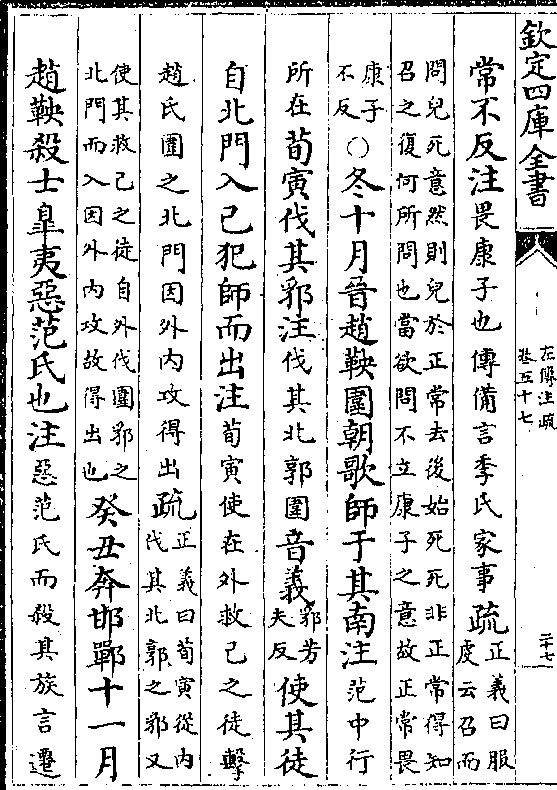 欽定四庫全書
左傳注疏
卷五十七
二十七
常不反注畏康子也傳備言季氏家事疏正義曰服
虔云召而
問兒死意然則兒於正常去後始死死非正常得知
召之復何所問也當欲問不立康子之意故正常畏
康子
不反○冬十月晉趙鞅圍朝歌師于其南注范中行
所在荀寅伐其郛注伐其北郭圍音義郛芳
夫反使其徒
自北門入己犯師而出注荀寅使在外救己之徒擊
趙氏圍之北門因外内攻得出疏正義曰荀寅從内
伐其北郭之郛又
使其救己之徒自外伐圍郛之
北門而入因外内攻故得出也癸丑奔邯鄲十一月
趙鞅殺士臯夷惡范氏也注惡范氏而殺其族言遷